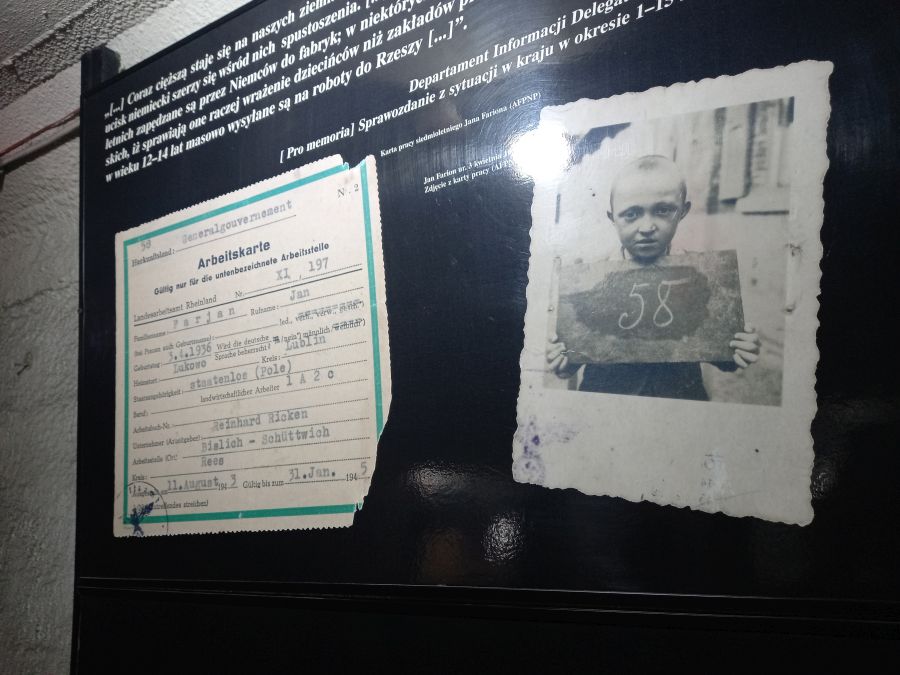 „[...] Coraz cięższą staje się na naszych
ucisk niemiecki szerzy się wśród nich spustoszenia.
letnich zapędzane są przez Niemców do fabryk; w niektórych
skich, iż sprawiają one raczej wrażenie dziecińców niż zakładów
w wieku 12–14 lat masowo wysyłane są na roboty do Rzeszy [...]”.
Departament Informacji
[ Pro memoria] Sprawozdanie z sytuacji w kraju w okresie 1–15
Karta pracy siedmioletniego Jana Fariona (AFPNP)
Jan Farion ur. 3 kwietnia
Zdjęcie z karty pracy
N . 2
58
Herkunftsland: Generalgouvernement
Arbeitskarte
Gültig nur für die untenbezeichnete Arbeitsstelle
Landesarbeitsamt Rheinland Nr. XI , 197
Familienname: Farjan Rufname: Jan
(bei Frauen auch Geburtsname) led., verh., verw., gesch.)
Geburtstag: 3.4.1936 Wird die deutsche
Sprache beherrscht? männlich (weiblich)
Heimatort: Lukowo Kreis: Lublin
Staatsangehörigkeit: staatenlos (Pole)
Beruf: landwirtschaftlicher Arbeiter 1 A 2 c
Arbeitsbuch-Nr.
Unternehmer (Arbeitgeber): Reinhard Ricken
Arbeitsstelle (Ort): Bislich - Schüttwich
Kreis: Rees
11.August 194 3 Gültig bis zum 31.Jan. 194 5
streichen)
58